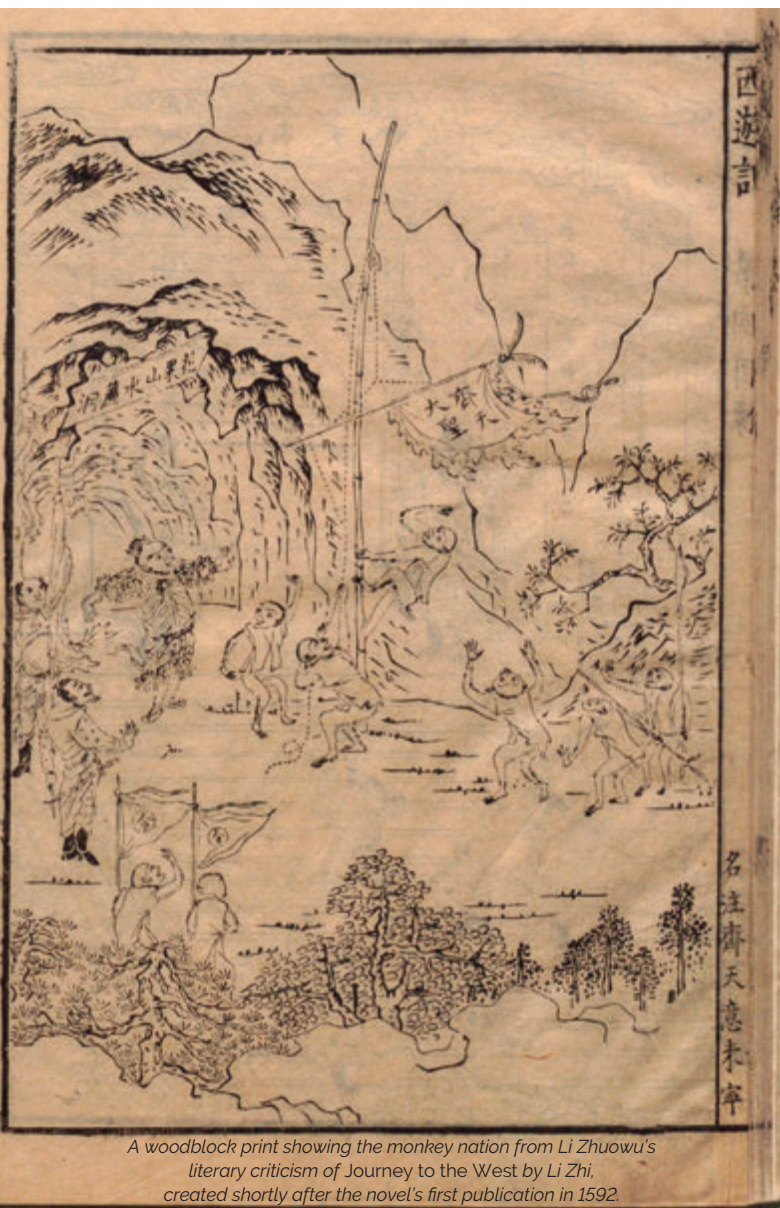 西遊記
花果山水簾洞
齊天
大聖
名注齊天意未寧
A woodblock print showing the monkey nation from Li Zhuowu's
literary criticism of Journey to the West by Li Zhi,
created shortly after the novel's first publication in 1592.